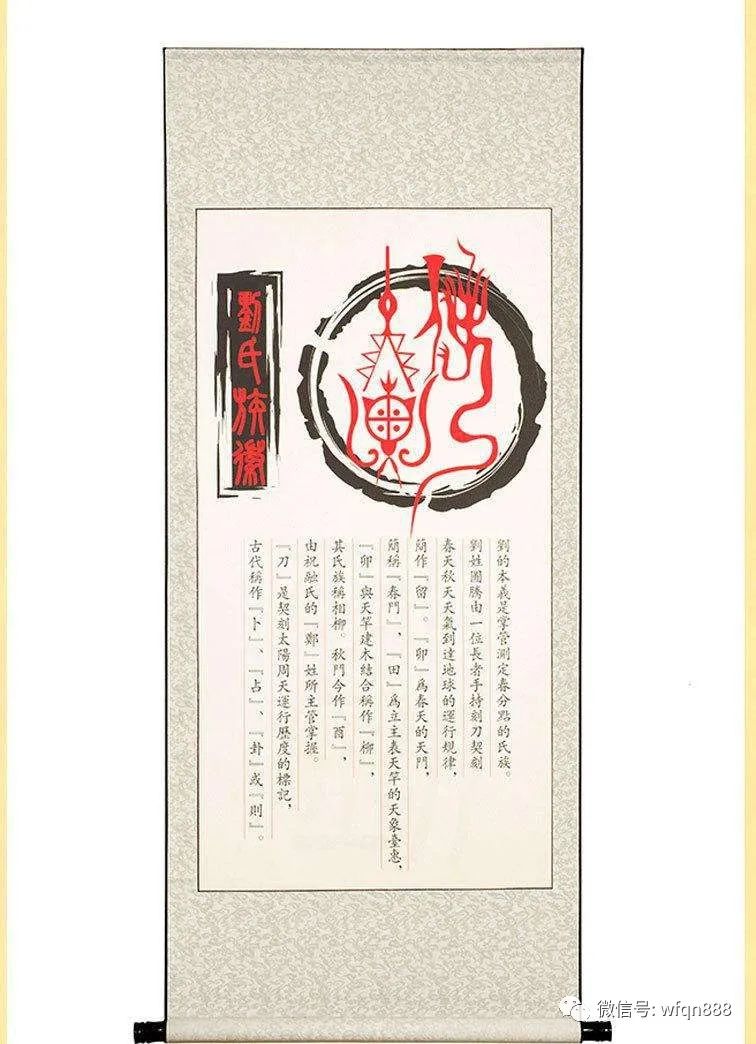 劉氏族徽
劉的本義是掌管測定春分點的氏族。
劉姓圖騰由一位長者手持刻刀契刻
春天秋天天氣到達地球的運行規律，
簡作『留』。『卯』爲春天的天門，
簡稱『春門』、『田』爲立主表天竿的天象臺惠，
『卯』與天竿建木結合稱作『柳』，
其氏族稱相柳。秋門今作『酉』，
由祝融氏的『鄭』姓所主管掌握。
『刀』是契刻太陽周天運行歷度的標記，
古代稱作『卜』、『占』、『卦』或『則』。
微信号: wfqn888